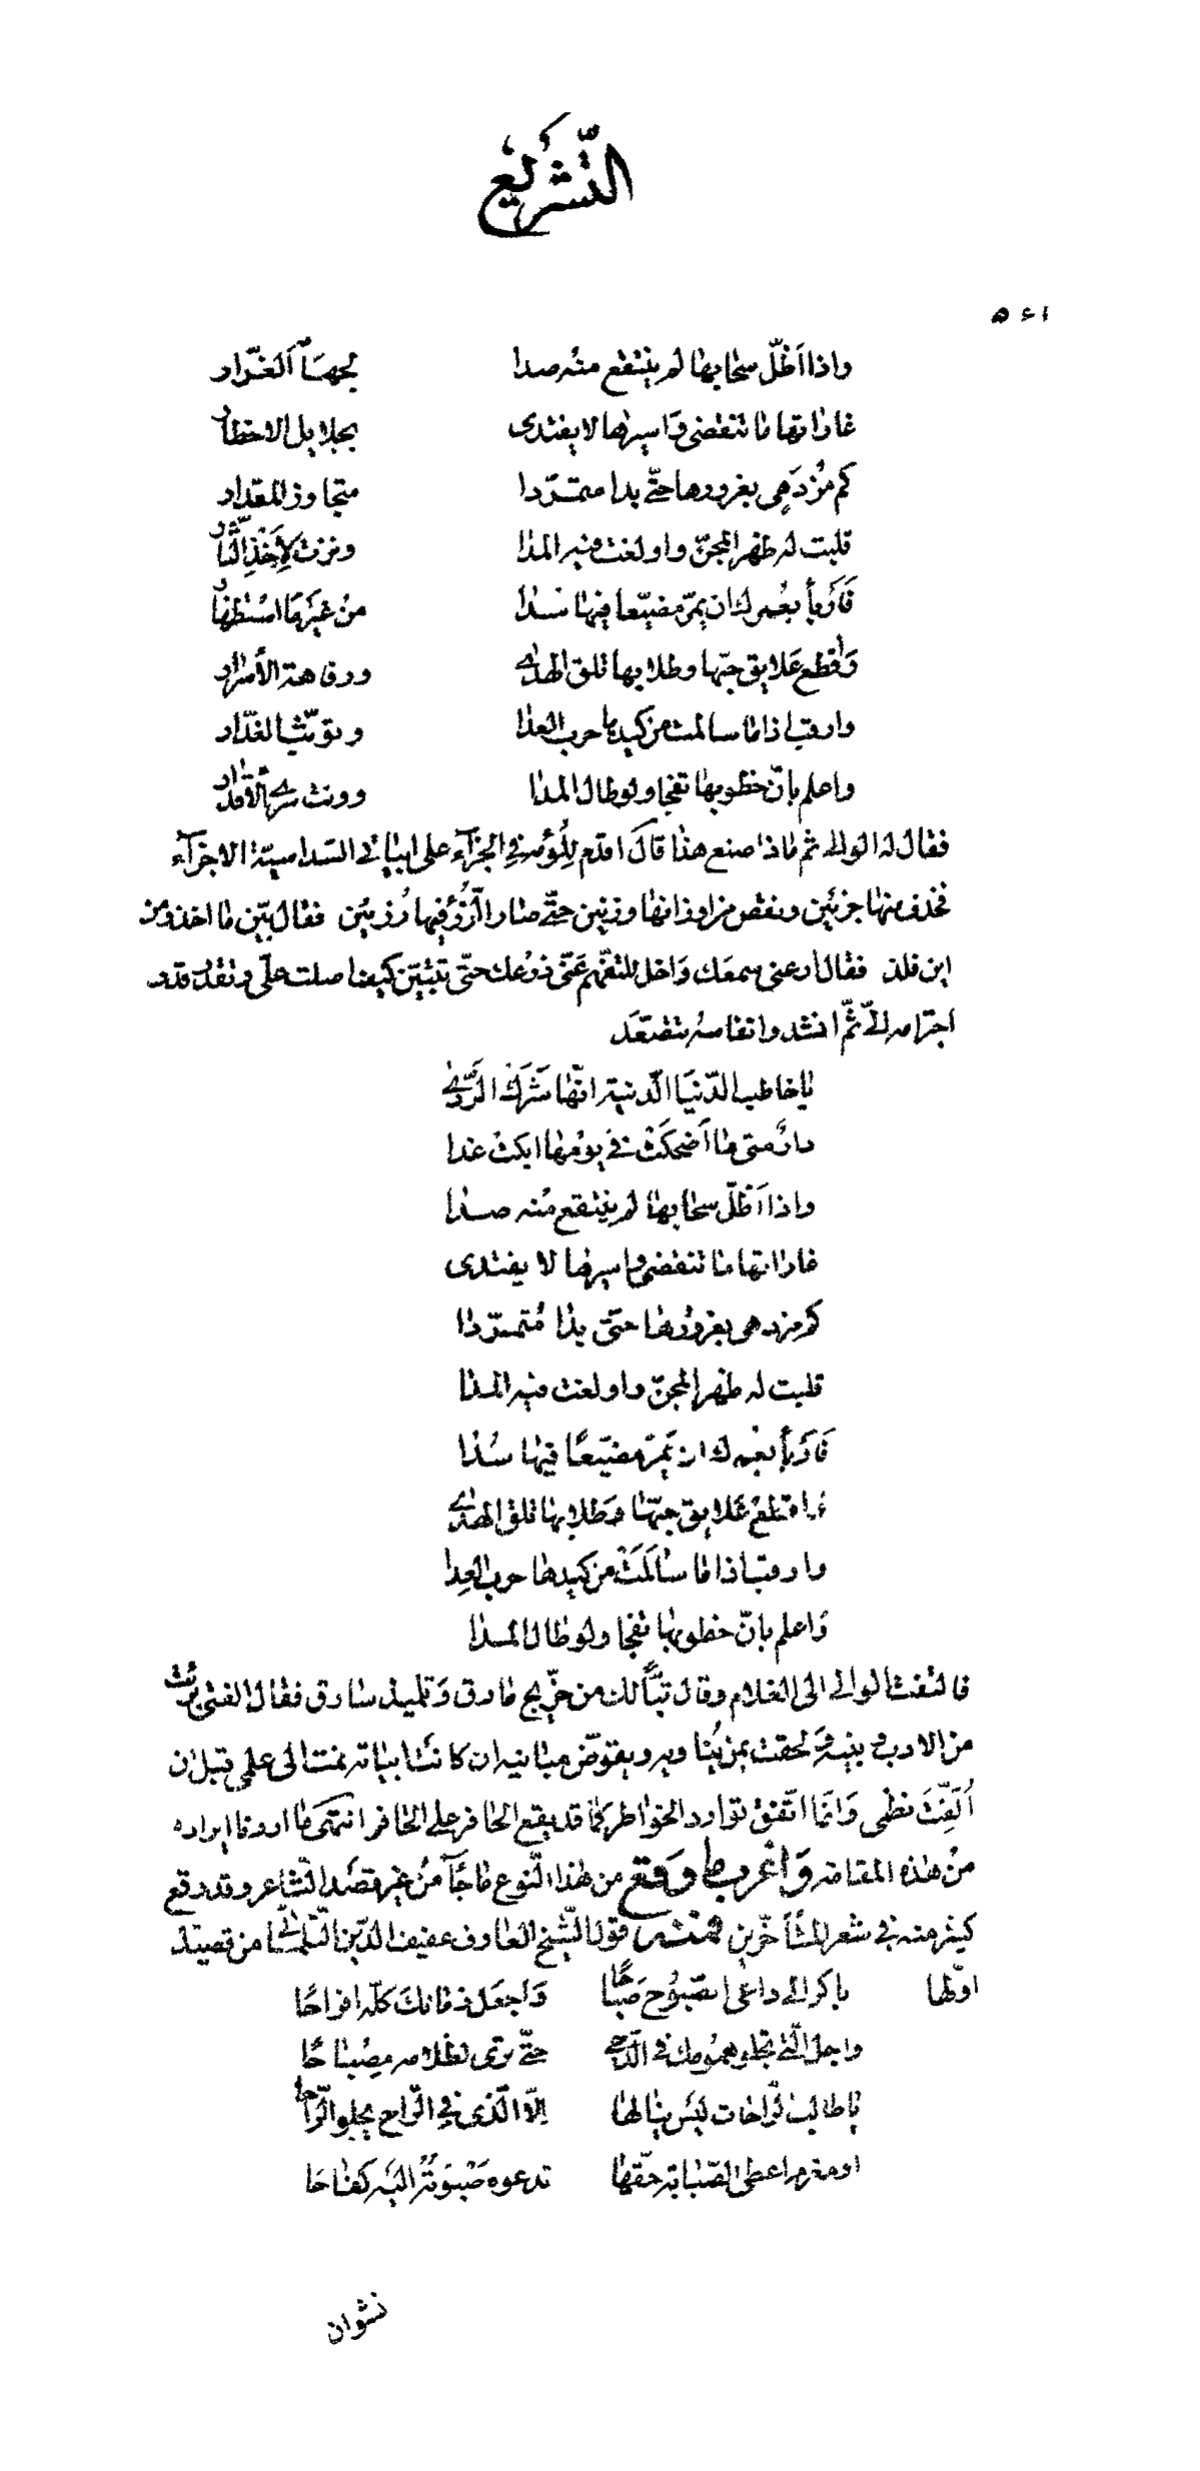 التشريع
٥٤١
واذا اظلّ سحابها لم ينتقع منه صدا لجهامه الغرّار
غاراتها ما تنقضى واسيرها لا يفتدى بجلايل الاخطار
كم مُزدَهِى بغرورها حتّى بدا متمرّدا متجاوز المقدار
قلبت له ظهر المجنّ واولغت فيه المدا ونزت لِأَخْذِ الثّار
فَارْبأ بعُمرك ان يمرّ مضيّعا فيها سدا مِنْ غيرِ مَا اسْتظهار
وَاقطع عَلايق حبّها وطلابها تلق الهدى ورفاهة الأسرار
وارقب اذا ما سالمت من كيدها حرب العدا وتوثّب الغدّار
واعلم بانّ خطوبها تفجا ولو طال المدا وونت سرى الأقدار
فقال له الوالى ثم ماذا صنع هذا قال اقدم للُؤمه فى الجزآء على ابياتى السّداسيّة الاجزآء
فحذف منها جزئين ونقص من اوزانها وزنين حتّى صار الرّزُؤ فيها رُزئين فقال بيّن ما اخذ ومن
اين فلذ فقال ارعنى سمعَك وَاخل للتفهّم عَنّى ذرْعك حتّى تتبيّن كيف اصلت علىّ وتقدّر قدر
اجترامه الىّ ثمّ انشد وانفاسه تتصعّد
يا خاطب الدّنيَا الدّنيّة انّها شَرَكُ الرّدَى
دارٌ متى ما أَضحكَتْ فى يومها ابكتْ غدا
واذا أَظلّ سحابها لم ينتقع مِنْه صدا
غاراتها ما تنقضى واسيرها لا يفتدى
كم مزدهى بغرورها حتى بدا مُتمرّدا
قلبت له ظهر المجنّ واولغت فيه المدا
فَارْبَأ بعمرك ان يَمرّ مضيّعًا فيها سُدا
واقطع عَلايق حبّها وَطلابها تلق الهدى
وارقب اذا ما سَالمَتْ من كيدها حرب العِدا
وَاعلم بانّ خطوبها تفجا ولو طال المدا
فالتفت الوالى الى الغلام وقال تبًّا لك من خرّيج مارق وَتلميذ سارق فقال الفتى برئت
من الادب وبنيه وَلحقت بمن يُناويه ويقوّض مبانيه ان كانت ابياته نمت الى علمى قبل ان
اُلّفت نظمى وَانّما اتّفق توارد الخواطر كما قد يقع الحافر على الحافر انتهى ما اردنا ايراده
من هذه المقامه وَاغرب ما وقع من هذا النّوع ما جآء من غير قصَد الشاعر وقد وقع
كثير منه فى شعر المتأخّرين فمنه قول الشّيخ العارف عفيف الدّين التّلمسانى من قصيدة
اوّلها باكر الى داعى الصّبُوح صَبَاحًا وَاجعَل زمانك كلّه افراحًا
واجل الّتى تجلو همُومك فى الدّجى حتّى ترى لظلامه مِصْباحًا
يا طالب الرّاحات ليَس ينالها الّا الّذى فى الرّاح يجلو الرّاحا
او مغرم اعطى الصّبابة حقّها تدعوه صَبْوَتُهُ اليَه كفاحَا
نشوان